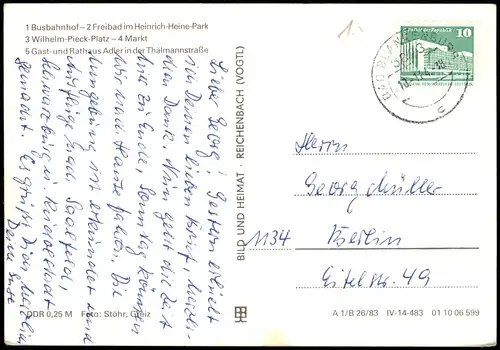 1 Busbahnhof – 2 Freibad im Heinrich-Heine-Park
3 Wilhelm-Pieck-Platz – 4 Markt
5 Gast- und Rathaus Adler in der Thälmannstraße
Lieber Georg! Gestern erhielt
ich Deinen lieben Brief, vielen
Dank. Nun geht die Zeit
zu Ende, Sonntag können
wir nach Hause fahren. Die
Umgebung ist und
Ausflüge nach Saalfeld,
Schwarzburg u. Rudolstadt
gemacht. Es grüßt Dich
Deine
DDR 0,25 M Foto: Stöhr, Greiz
BILD UND HEIMAT · REICHENBACH (VOGTL)
10
BAD BLANKENBURG
6823
Herrn
Georg Müller
1134 Berlin
Eitelstr. 49
A 1/B 26/83 IV-14-483 01 10 06 599